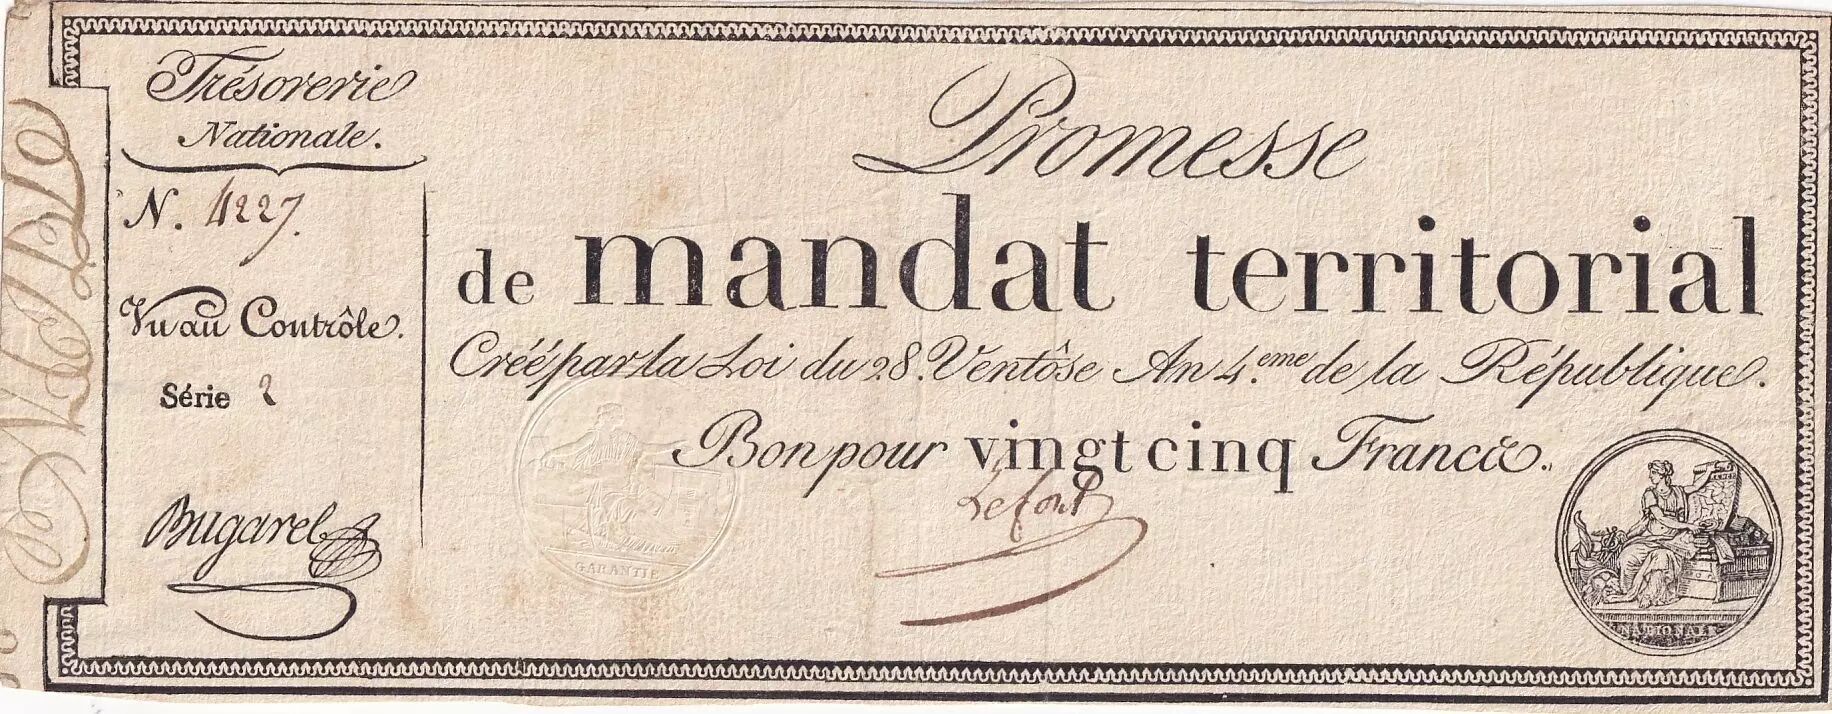 Trésorerie
Nationale.
N. 4227.
Vu au Contrôle.
Série 2
Bugarel
Promesse
de mandat territorial
Créé par la Loi du 28. Ventôse An 4.eme de la République.
Bon pour vingt cinq Francs.
Lefont
GARANTIE
NATIONALE